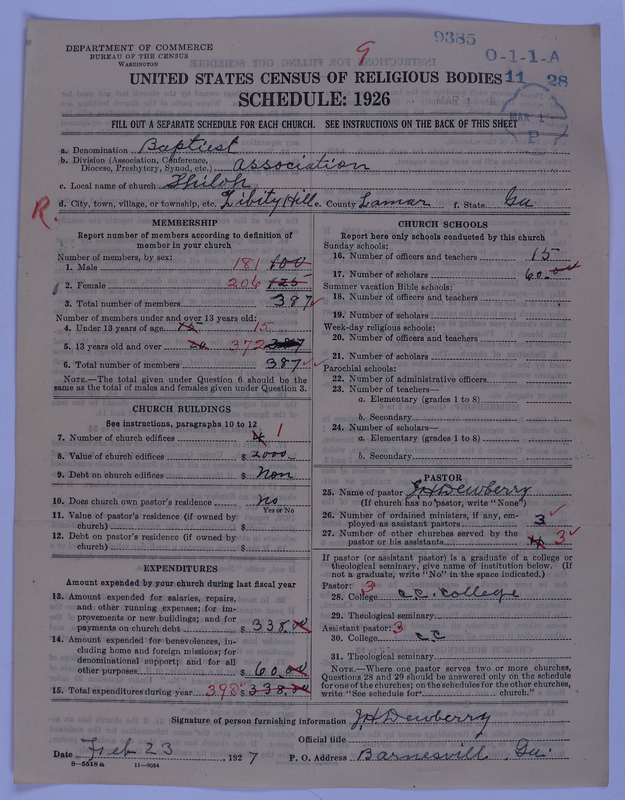 9385
9
O-1-1-A
DEPARTMENT OF COMMERCE
BUREAU OF THE CENSUS
WASHINGTON
UNITED STATES CENSUS OF RELIGIOUS BODIES 11 28
SCHEDULE: 1926
MAR 1
MAR 1
P
FILL OUT A SEPARATE SCHEDULE FOR EACH CHURCH. SEE INSTRUCTIONS ON THE BACK OF THIS SHEET
a. Denomination Baptist
b. Division (Association, Conference, Diocese, Presbytery, Synod, etc.) association
c. Local name of church Shiloh
R d. City, town, village, or township, etc. Libity Hill e. County Lamar f. State Ga
MEMBERSHIP
Report number of members according to definition of
member in your church
Number of members, by sex:
1. Male 181 100
2. Female 206 125
3. Total number of members 387
Number of members under and over 13 years old:
4. Under 13 years of age 15 15
5. 13 years old and over 20 372 387
6. Total number of members 387
NOTE.—The total given under Question 6 should be the
same as the total of males and females given under Question 3.
CHURCH BUILDINGS
See instructions, paragraphs 10 to 12
7. Number of church edifices 4 1
8. Value of church edifices $ 2000
9. Debt on church edifices $ Non
10. Does church own pastor's residence No
Yes or No
11. Value of pastor's residence (if owned by
church) $
12. Debt on pastor's residence (if owned by
church) $
EXPENDITURES
Amount expended by your church during last fiscal year
13. Amount expended for salaries, repairs,
and other running expenses; for im-
provements or new buildings; and for
payments on church debt $ 338.00
14. Amount expended for benevolences, in-
cluding home and foreign missions; for
denominational support; and for all
other purposes $ 60.00
15. Total expenditures during year 398 $ 338.00
CHURCH SCHOOLS
Report here only schools conducted by this church
Sunday schools:
16. Number of officers and teachers 15
17. Number of scholars 60.00
Summer vacation Bible schools:
18. Number of officers and teachers
19. Number of scholars
Week-day religious schools:
20. Number of officers and teachers
21. Number of scholars
Parochial schools:
22. Number of administrative officers
23. Number of teachers—
a. Elementary (grades 1 to 8)
b. Secondary
24. Number of scholars—
a. Elementary (grades 1 to 8)
b. Secondary
PASTOR
25. Name of pastor J.H. Dewberry
(If church has no pastor, write "None")
26. Number of ordained ministers, if any, em-
ployed as assistant pastors 3
27. Number of other churches served by the
pastor or his assistants 4 3
If pastor (or assistant pastor) is a graduate of a college or
theological seminary, give name of institution below. (If
not a graduate, write "No" in the space indicated.)
Pastor: 3
28. College C.C. College
29. Theological seminary
Assistant pastor: 3
30. College C C
31. Theological seminary
NOTE.—Where one pastor serves two or more churches,
Questions 28 and 29 should be answered only on the schedule
for one of the churches; on the schedules for the other churches,
write "See schedule for church."
Signature of person furnishing information J.H. Dewberry
Official title
Date Feb 23, 1927 P. O. Address Barnesvill Ga.
8-5518a 11-9064